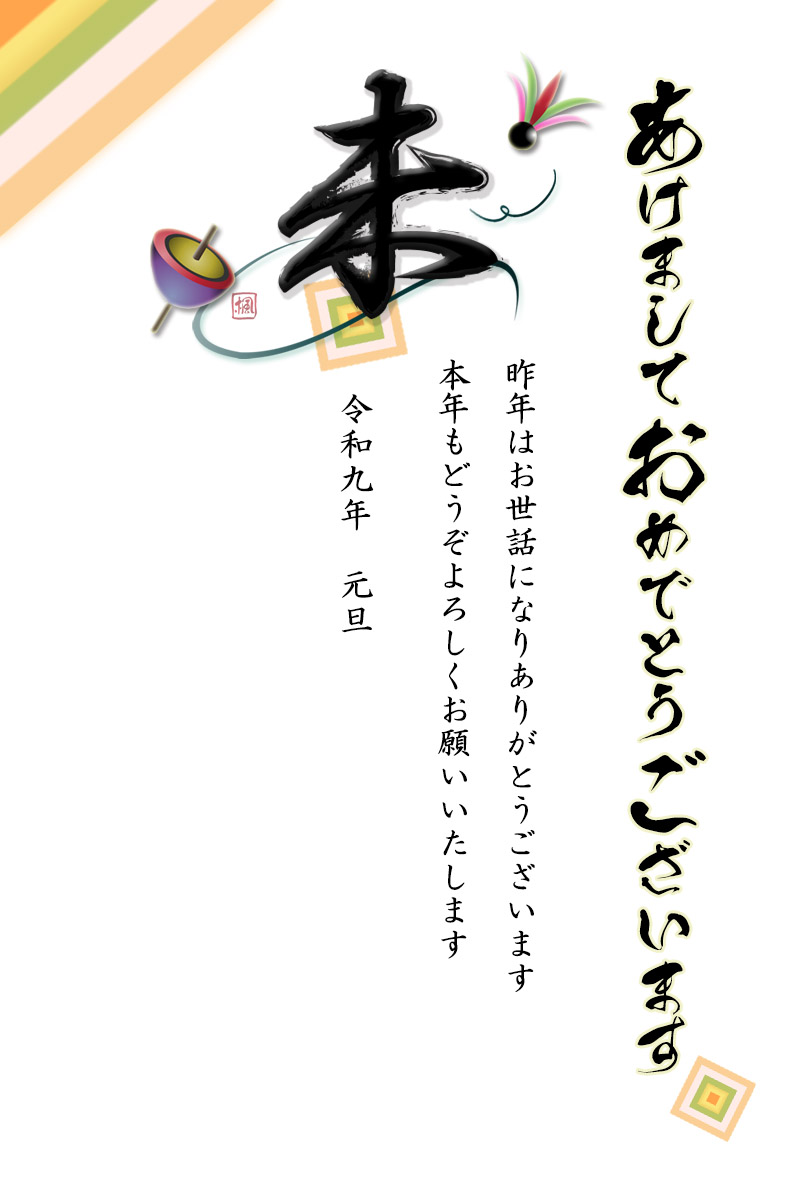 あけましておめでとうございます
未
楓
昨年はお世話になりありがとうございます
本年もどうぞよろしくお願いいたします
令和九年　元旦